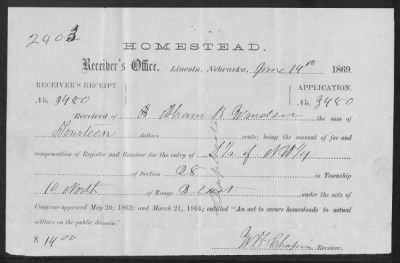 2403
HOMESTEAD.
Receiver's Office. Lincoln, Nebraska, June 14th 1869.
RECEIVER'S RECEIPT. APPLICATION.
No. 3480 No. 3480
Received of Abram B the sum of
Fourteen dollars cents; being the amount of fee and
compensation of Register and Receiver for the entry of of NW¼
of Section 28 in Township
10 North of Range 2 east under the acts of
Congress approved May 20, 1862; and March 21, 1864; entitled "An act to secure homesteads to actual
settlers on the public domain."
$ 14.00 W H Chapin Receiver.